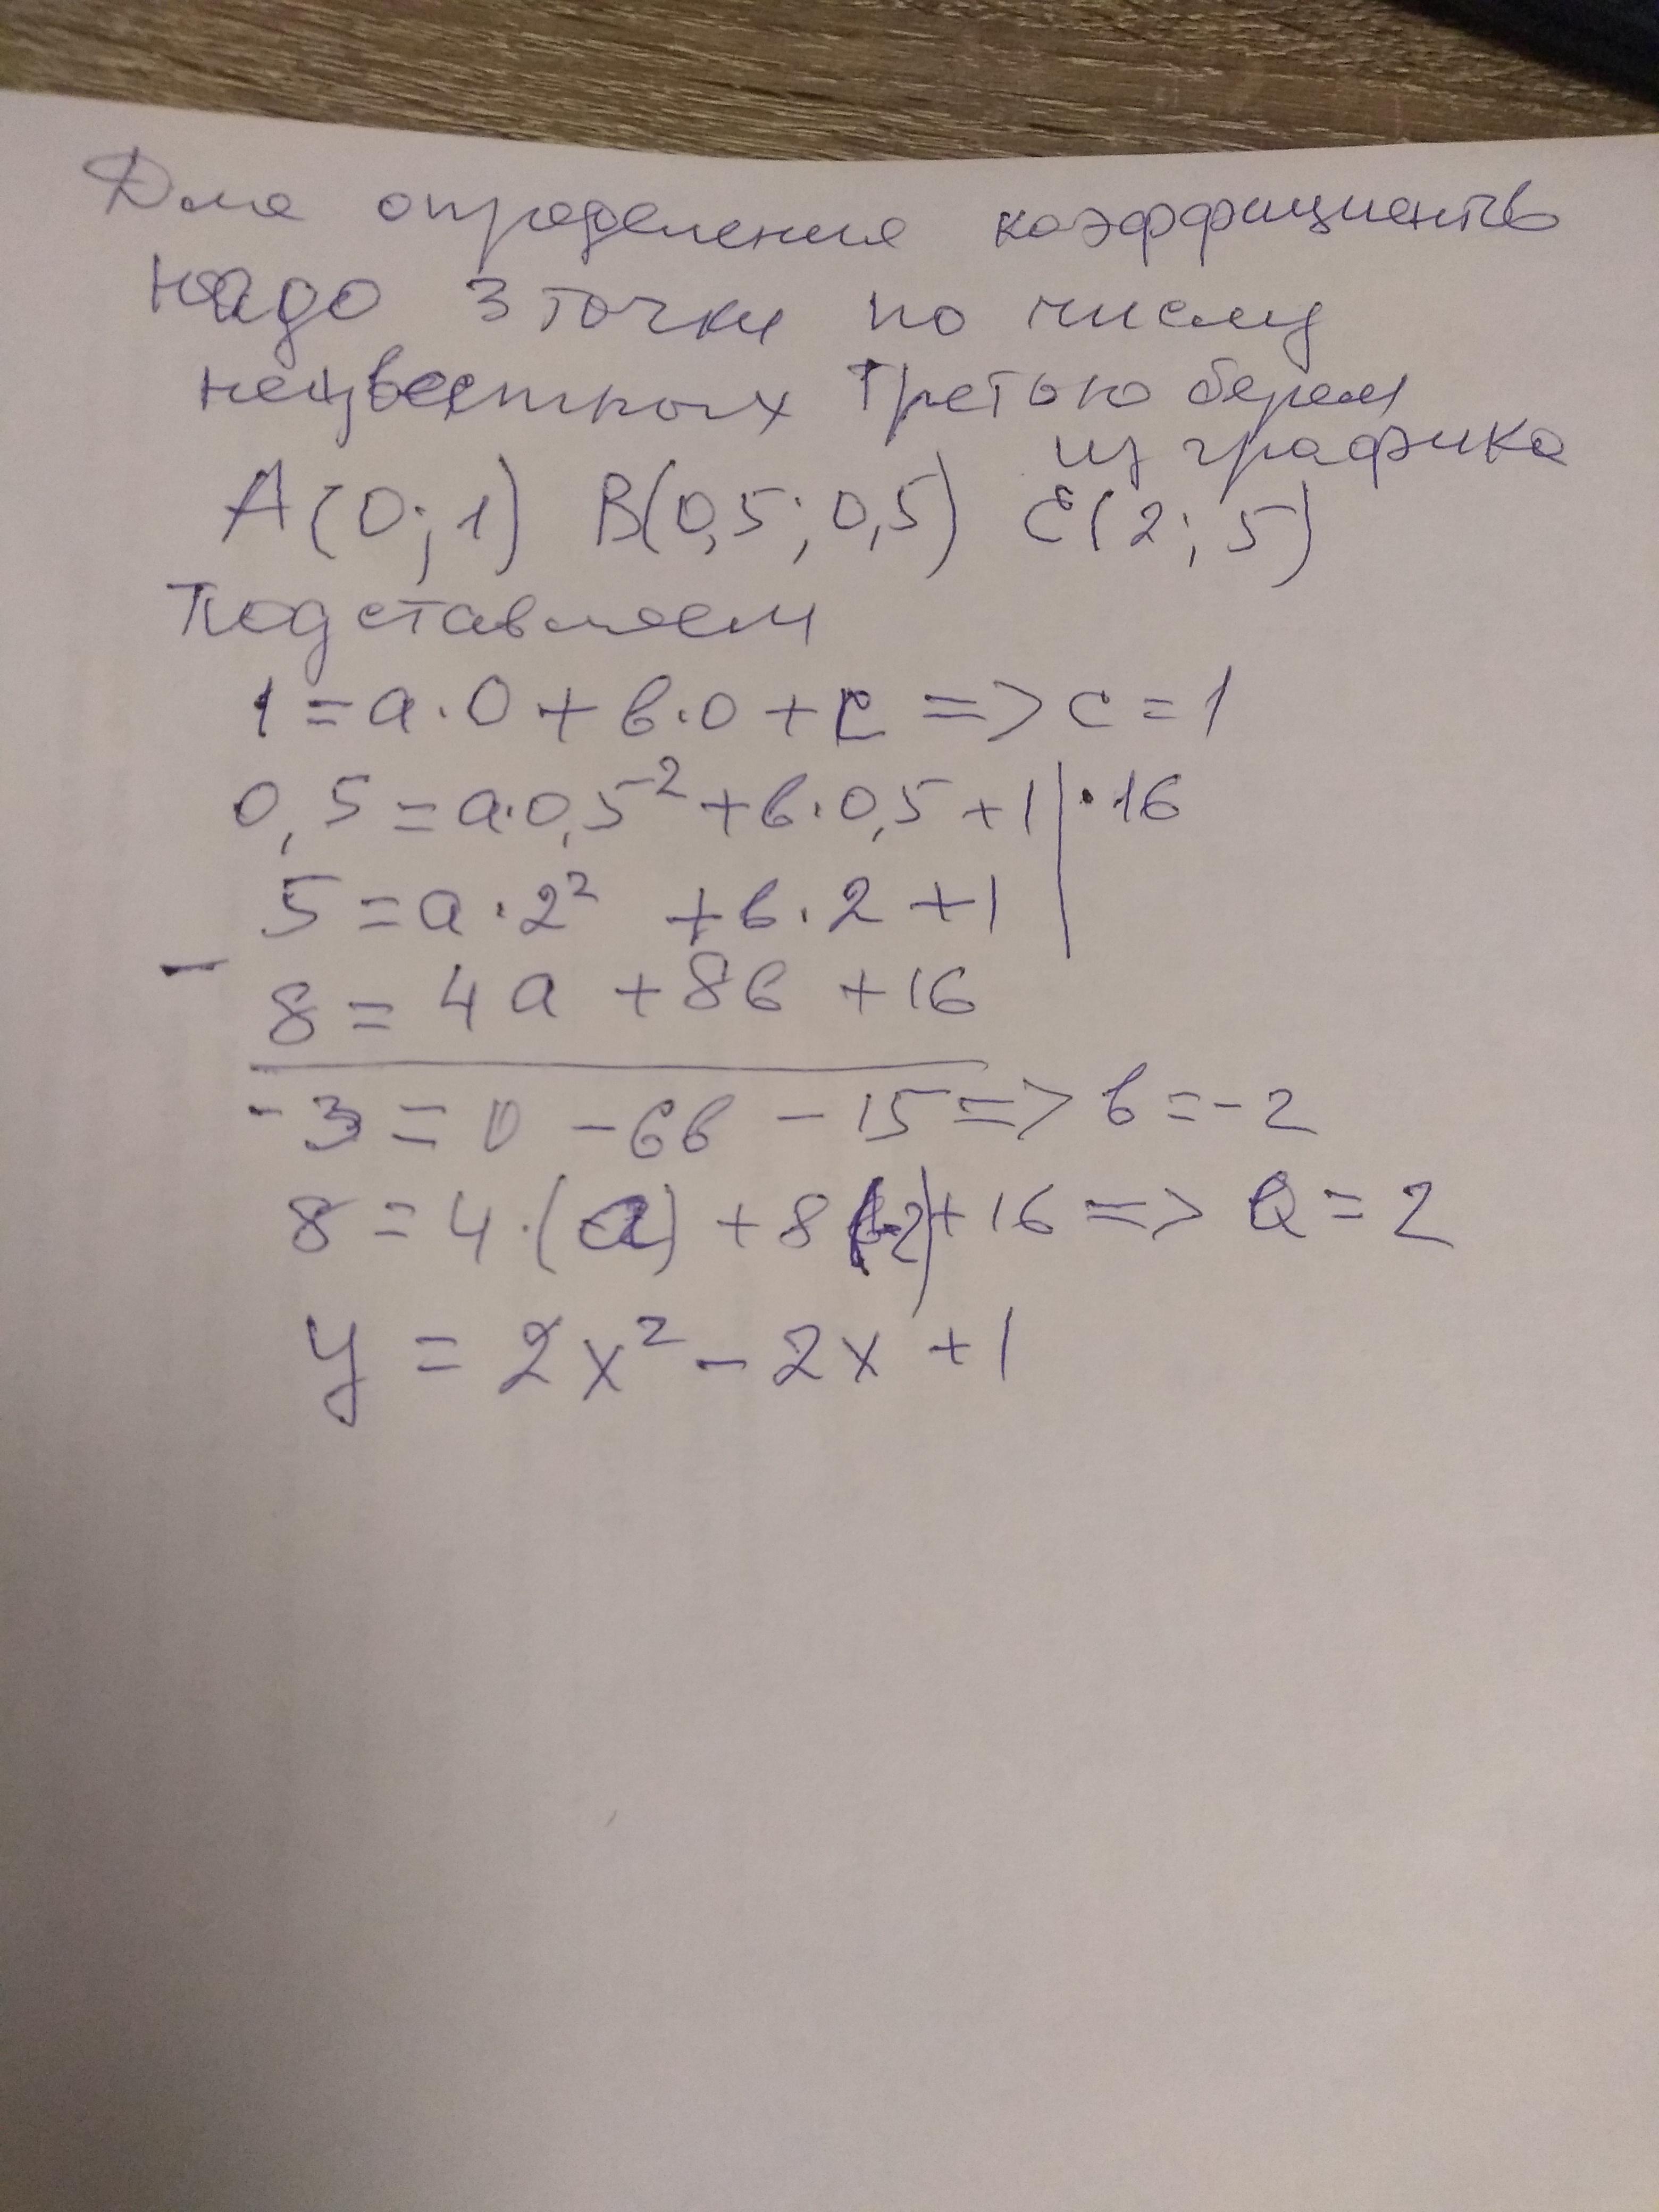 Для определения коэффициентв
надо 3 точки по числу
неизвестных Третью берем
из графика
А(0;1) В(0,5;0,5) С(2;5)
Подставляем
1=a·0+в·0+c=>c=1
0,5=a·0,5²+в·0,5+1|·16
5=a·2²+в·2+1
-
8=4a+8в+16
-3=0-6в-15=>в=-2
8=4·(a)+8(-2)+16=>a=2
y=2x²-2x+1